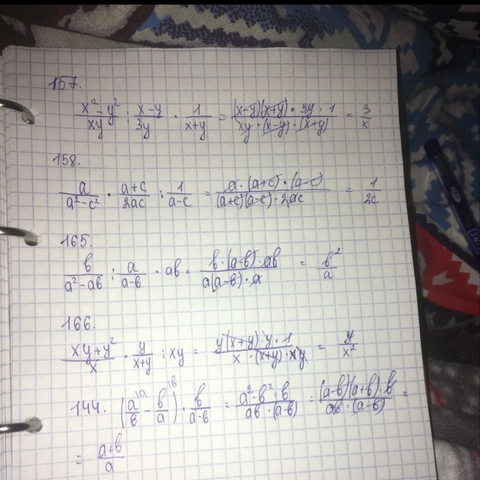 157.
(x² - y²)/(xy) : (x-y)/(3y) · 1/(x+y) = ((x-y)(x+y) · 3y · 1)/(xy · (x-y) · (x+y)) = 3/x
158.
a/(a²-c²) · (a+c)/(2ac) : 1/(a-c) = (a · (a+c) · (a-c))/((a+c)(a-c) · 2ac) = 1/(2c)
165.
b/(a²-ab) : a/(a-b) · ab = (b · (a-b) · ab)/(a(a-b) · a) = b²/a
166.
(xy+y²)/x · y/(x+y) : xy = (y(x+y) · y · 1)/(x · (x+y) · xy) = y/x²
144. (a/b \a - b/a \b) : b/(a-b) = (a²-b² · b)/(ab · (a-b)) = ((a-b)(a+b) · b)/(ab · (a-b)) =
= (a+b)/a